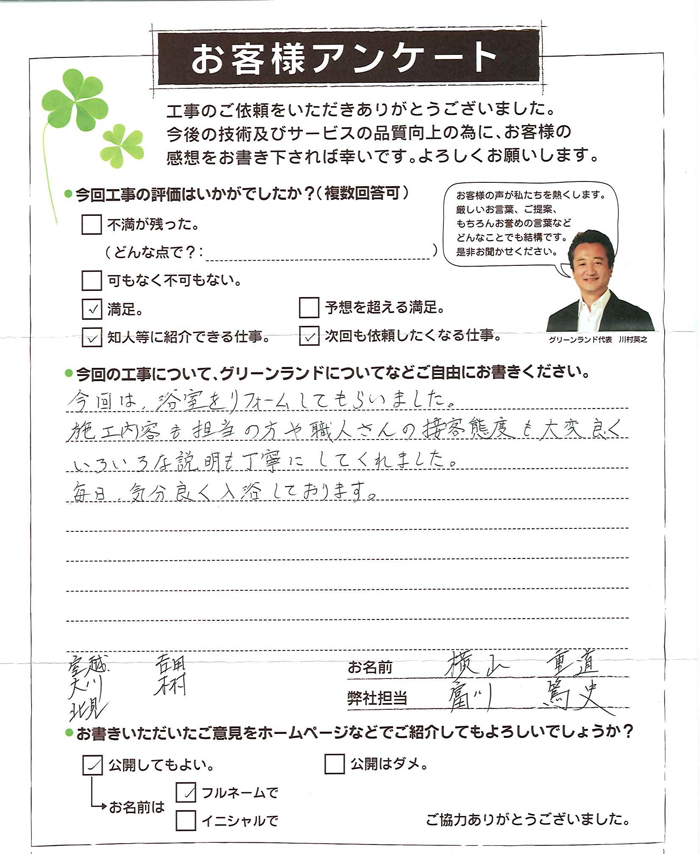 お客様アンケート
工事のご依頼をいただきありがとうございました。
今後の技術及びサービスの品質向上の為に、お客様の
感想をお書き下されば幸いです。よろしくお願いします。
●今回工事の評価はいかがでしたか？（複数回答可）
お客様の声が私たちを熱くします。
厳しいお言葉、ご提案、
もちろんお誉めの言葉など
どんなことでも結構です。
是非お聞かせください。
グリーンランド代表 川村英之
不満が残った。
（どんな点で？：　）
可もなく不可もない。
満足。 予想を超える満足。
知人等に紹介できる仕事。 次回も依頼したくなる仕事。
●今回の工事について、グリーンランドについてなどご自由にお書きください。
今回は、浴室をリフォームしてもらいました。
施工内容も担当の方や職人さんの接客態度も大変良く
いろいろな説明も丁寧にしてくれました。
毎日、気分良く入浴しております。
室越 吉田
大川 木村
北見
お名前 横山 重道
弊社担当 富川 篤史
●お書きいただいたご意見をホームページなどでご紹介してもよろしいでしょうか？
公開してもよい。 公開はダメ。
お名前は フルネームで
イニシャルで
ご協力ありがとうございました。